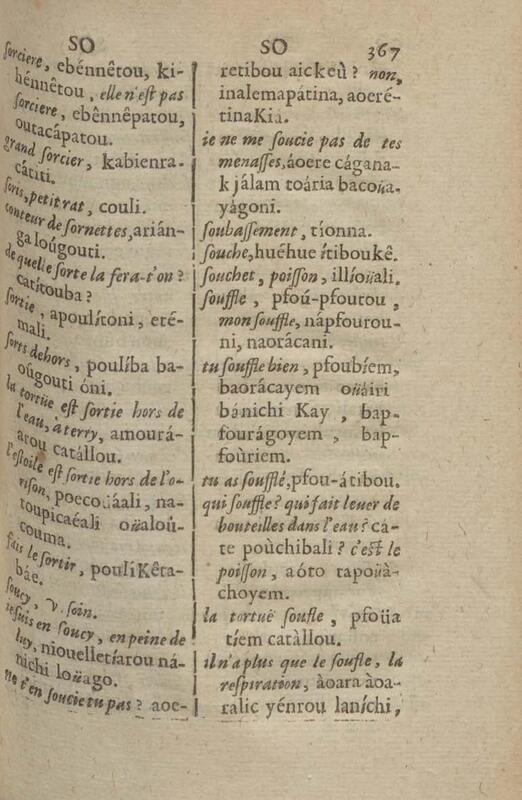 SO
ſorciere, ebénnêtou, ki-
bénnêtou, elle n'eſt pas
ſorciere, ebênnêpatou,
outacápatou.
grand ſorcier, kabienra-
cátiti.
ſoris, petit rat, couli.
conteur de ſornettes, arián-
ga loúgouti.
de quelle ſorte la fera-t'on?
catítouba?
ſortie, apoulítoni, eté-
mali.
ſorts dehors, poulíba ba-
oúgouti óni.
la tortuë eſt ſortie hors de
l'eau, à terry, amourá-
arou catállou.
l'eſtoile eſt ſortie hors de l'o-
riſon, na-
toupicaéali oüaloû-
couma.
fais le ſortir, poulíKêta-
báe.
ſoucy, v. ſoin.
ie ſuis en ſoucy, en peine de
luy, niouelletíarou ná-
nichi loüago.
ne t'en ſoucie tu pas? aoe-
SO 367
retibou aickeù? non,
inalemapátina, aoeré-
tinaKia.
ie ne me ſoucie pas de tes
menaſſes, áoere cágana-
k jálam toária bacoüa-
yágoni.
ſoubaſſement, tíonna.
ſouche, huéhue ítiboukê.
ſouchet, poiſſon, illíoüali.
ſouffle, pfoú-pfoutou,
mon ſouffle, nápfourou-
ni, naorácani.
tu ſouffle bien, pfoubíem,
baorácayem oüáiri
bánichi Kay, bap-
fourágoyem, bap-
foùriem.
tu as ſoufflé, pfou-átibou.
qui ſouffle? qui fait leuer de
bouteilles dans l'eau? cà-
te poùchibali? c'eſt le
poiſſon, aóto tapoüà-
choyem.
la tortuë ſoufle, pfoüa
tíem catàllou.
il n'a plus que le ſoufle, la
reſpiration, àoara àoa-
ralic yénrou laníchi,